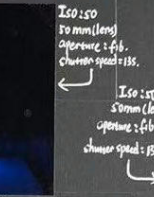 Iso:50
50mm(lens)
aperture: f16.
shutter speed=135.
Iso:50
50mm (le
aperture: f16
shutter speed: 13